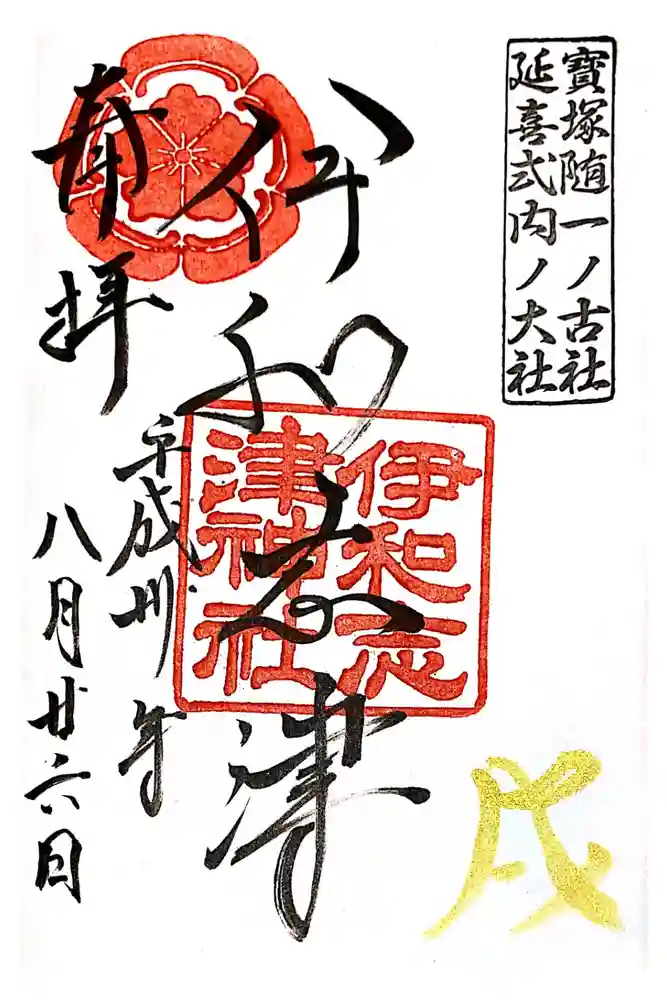 寶塚随一ノ古社
延喜式内ノ大社
戌
伊和志津
伊和志
津神社
奉拝
平成卅年
八月廿六日